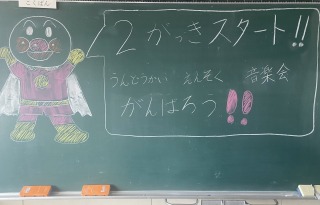 こくばん
2がっきスタート!!
うんどうかい えんそく 音楽会
がんばろう!!